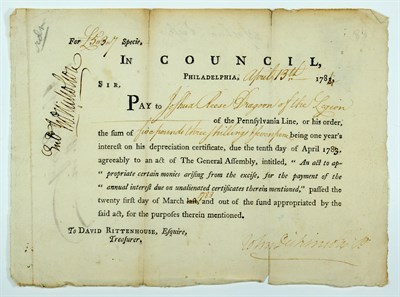 For £5..3..7 Specie,
IN COUNCIL,
PHILADELPHIA, April 13th 1784
SIR,
PAY to Joshua Reese Dragoon of the Legion
of the Pennsylvania Line, or his order,
the sum of five pounds three shillings being one year's
interest on his depreciation certificate, due the tenth day of April 1783,
agreeably to an act of The General Assembly, intitled, "An act to ap-
"propriate certain monies arising from the excise, for the payment of the
"annual interest due on unalienated certificates therein mentioned," passed the
twenty first day of March last, and out of the fund appropriated by the
said act, for the purposes therein mentioned.
To DAVID RITTENHOUSE, Esquire,
Treasurer.
John Dickinson